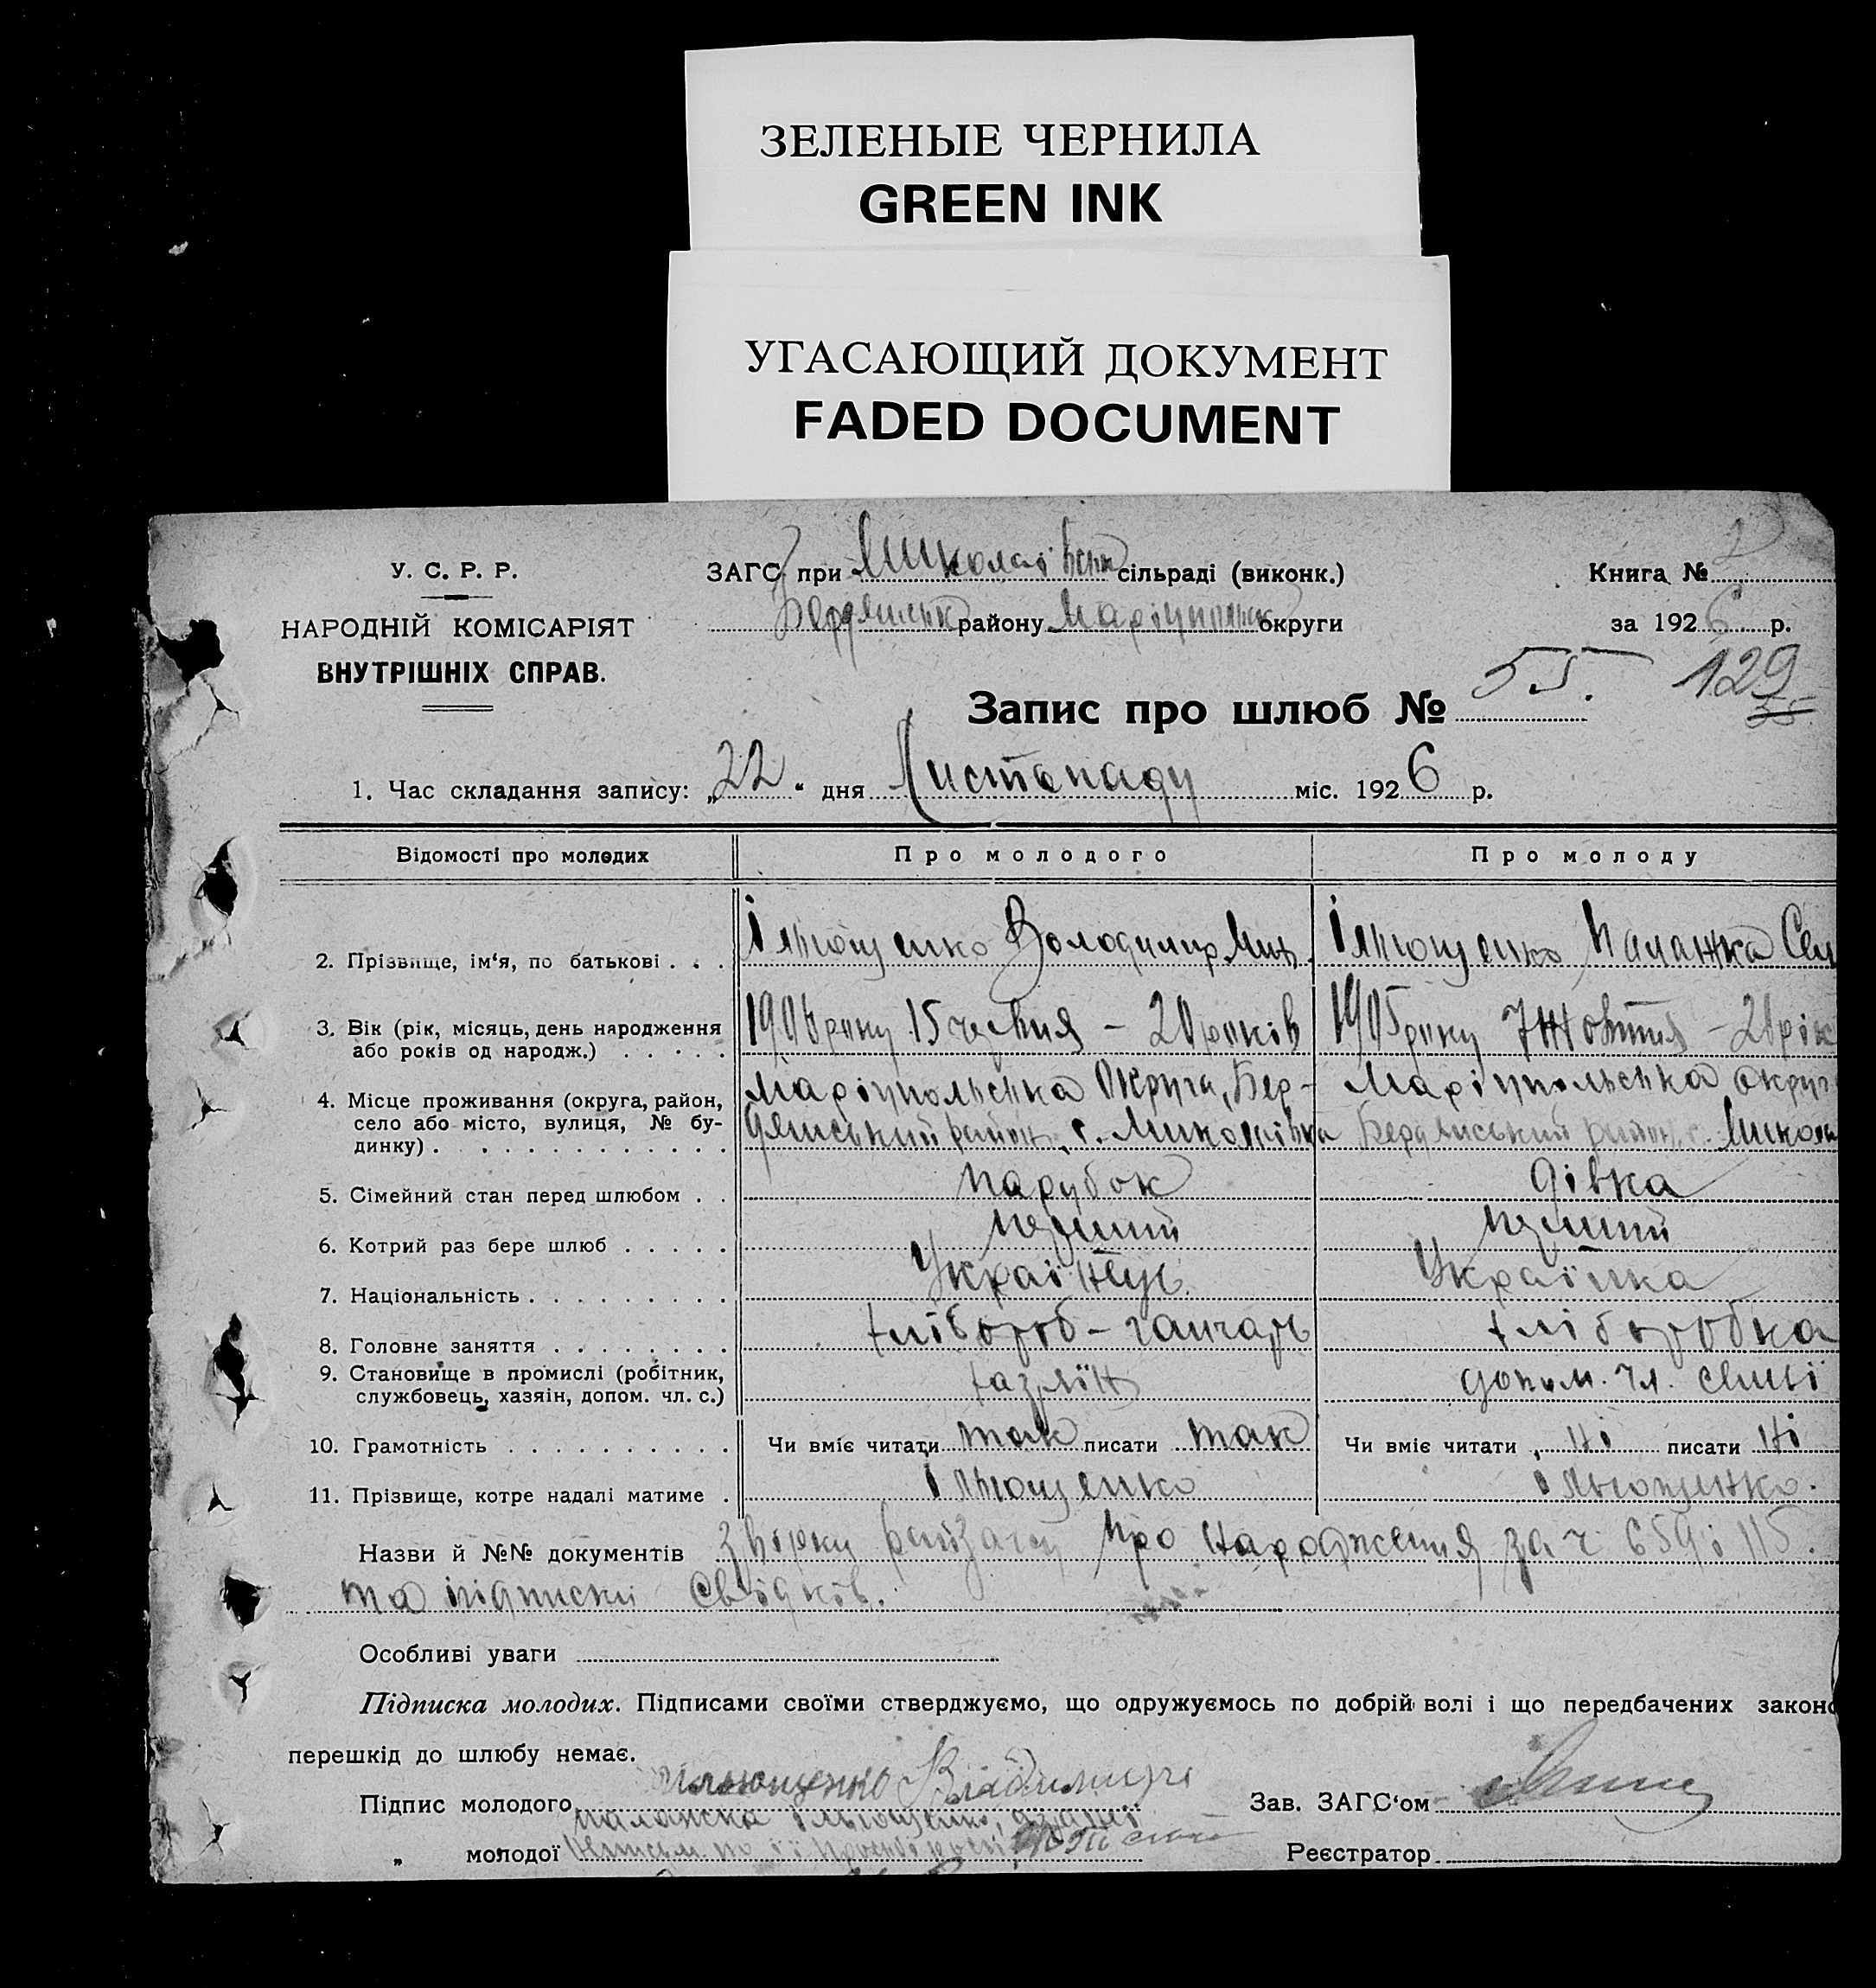 ЗЕЛЕНЫЕ ЧЕРНИЛА
GREEN INK
УГАСАЮЩИЙ ДОКУМЕНТ
FADED DOCUMENT
У. С. Р. Р.
НАРОДНІЙ КОМІСАРІЯТ
ВНУТРІШНІХ СПРАВ.
ЗАГС при Миколаівськ сільраді (виконк.)
Бердянськ району Маріупольськ округи
Книга № 2
за 1926 р.
Запис про шлюб № 55. 129
1. Час складання запису: „22“ дня Листопаду міс. 1926 р.
Відомості про молодих Про молодого Про молоду
2. Прізвище, ім‘я, по батькові . . . Ільющенко Володимир Ільющенко Паланжка Сем
3. Вік (рік, місяць, день народження 1906 року 15 червня – 20 років 1905 року 7 Жовтня –
або років од народж.) . . . . .
4. Місце проживання (округа, район, Маріупольська Округа, Бер- Маріупольська округ
село або місто, вулиця, № бу- дянський район, с. Миколаівка Бердянський район, с. Микола
динку) . . . . . . . . . . . . .
5. Сімейний стан перед шлюбом . . парубок дівка
6. Котрий раз бере шлюб . . . . . перший перший
7. Національність . . . . . . . . . Украінець Українка
8. Головне заняття . . . . . . . . хлібороб – ганчарь хліборобка
9. Становище в промислі (робітник, хазяїн допом. чл. сім'ї
службовець, хазяін, допом. чл. с.)
10. Грамотність . . . . . . . . . . Чи вміє читати так писати так Чи вміє читати ні писати ні
11. Прізвище, котре надалі матиме . Ільющенко Ільющенко.
Назви й №№ документів про народження за ч 659 і 115.
та підписки свідків.
Особливі уваги
Підписка молодих. Підписами своїми стверджуємо, що одружуємось по добрій волі і що передбачених законо
перешкід до шлюбу немає.
Підпис молодого Ильющенко Владимир Зав. ЗАГС‘ом
Паланжка Ільющенко,
„ молодої по її просьбі Реєстратор